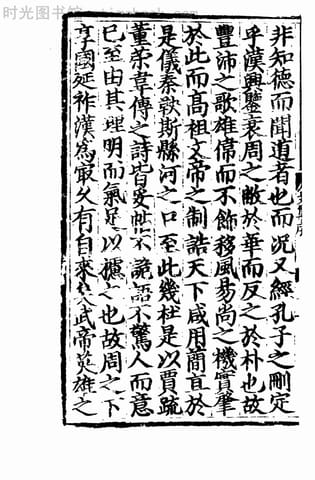 时光图书馆
非知德而聞道者也而況又經孔子之刪定
乎漢興鑒衰周之敝於華而反之於朴也故
豐沛之歌雄偉而不飾移風易尚之機實肇
於此而高祖文帝之制誥天下咸用簡直於
是儀秦鞅斯縣河之口至此幾杜是以賈疏
董策韋傳之詩皆妥帖不詭語不驚人而意
已至由其理明而氣足以攄之也故周之下
享國延祚漢為最久有自來矣武帝英雄之